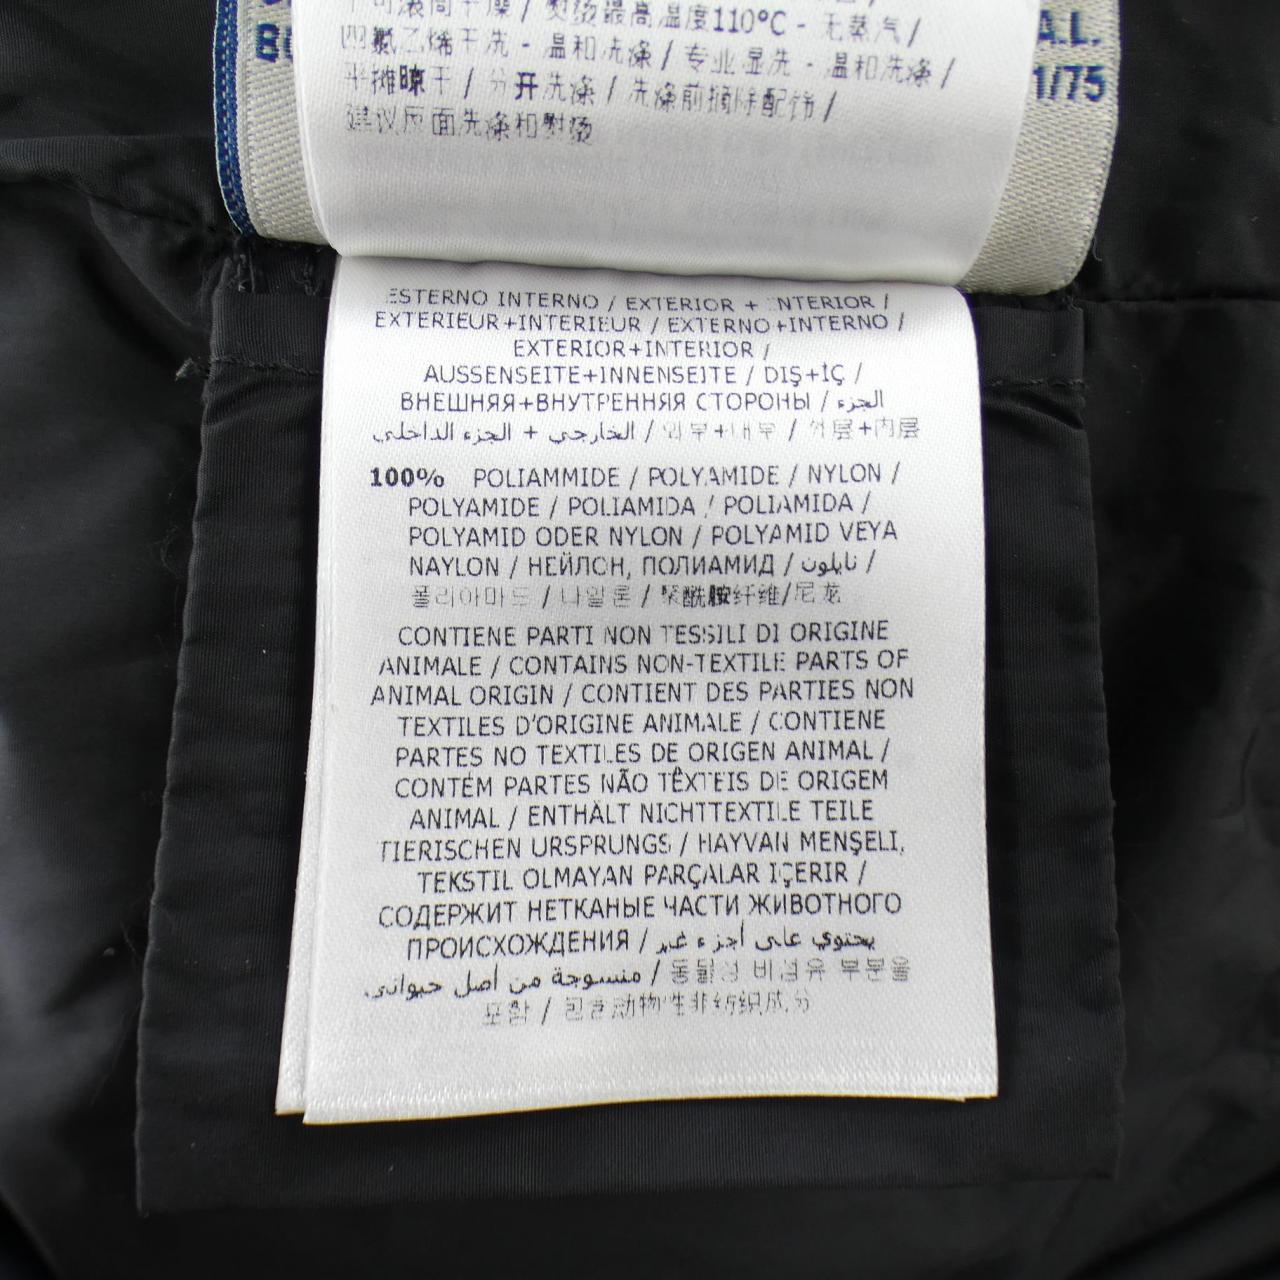 不可滚筒干燥 / 熨烫最高温度110°C - 无蒸汽 /
四氯乙烯干洗 - 温和洗涤 / 专业湿洗 - 温和洗涤 /
平摊晾干 / 分开洗涤 / 洗涤前摘除配饰 /
建议反面洗涤和熨烫
A.L.
1/75
ESTERNO INTERNO / EXTERIOR + INTERIOR /
EXTERIEUR+INTERIEUR / EXTERNO+INTERNO /
EXTERIOR+INTERIOR /
AUSSENSEITE+INNENSEITE / DIŞ+İÇ /
ВНЕШНЯЯ+ВНУТРЕННЯЯ СТОРОНЫ / الجزء
الخارجي + الجزء الداخلي / 외부+내부 / 外层+内层
100% POLIAMMIDE / POLYAMIDE / NYLON /
POLYAMIDE / POLIAMIDA / POLIAMIDA /
POLYAMID ODER NYLON / POLYAMID VEYA
NAYLON / НЕЙЛОН, ПОЛИАМИД / نايلون /
폴리아마드 / 나일론 / 聚酰胺纤维/尼龙
CONTIENE PARTI NON TESSILI DI ORIGINE
ANIMALE / CONTAINS NON-TEXTILE PARTS OF
ANIMAL ORIGIN / CONTIENT DES PARTIES NON
TEXTILES D'ORIGINE ANIMALE / CONTIENE
PARTES NO TEXTILES DE ORIGEN ANIMAL /
CONTÉM PARTES NÃO TÊXTEIS DE ORIGEM
ANIMAL / ENTHÄLT NICHTTEXTILE TEILE
TIERISCHEN URSPRUNGS / HAYVAN MENŞELI,
TEKSTIL OLMAYAN PARÇALAR IÇERIR /
СОДЕРЖИТ НЕТКАНЫЕ ЧАСТИ ЖИВОТНОГО
ПРОИСХОЖДЕНИЯ / يحتوي على أجزء غير
منسوجة من أصل حيواني / 동물성 비섬유 부분을
포함 / 包含动物性非纺织成分